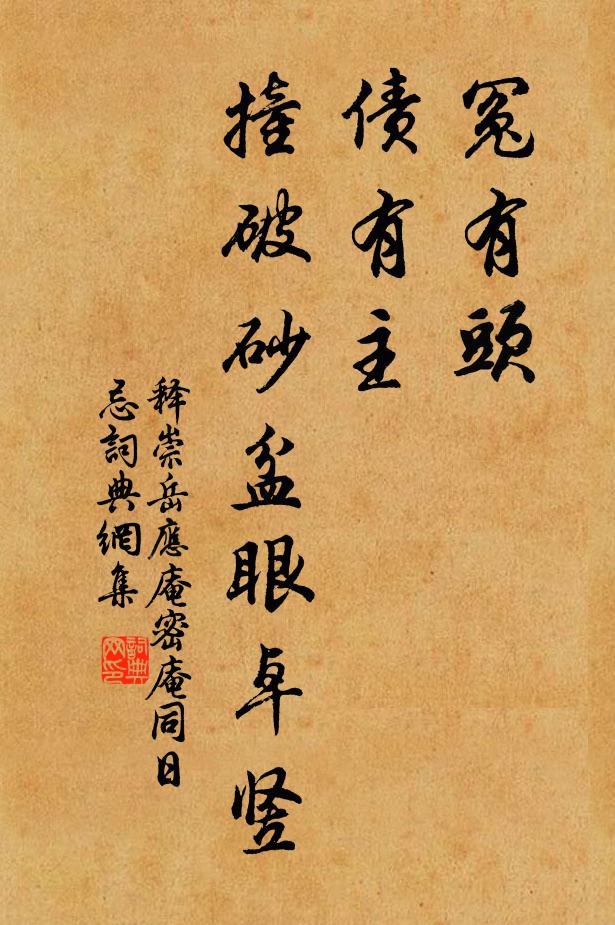 冤有頭
债有主
撞破砂盆眼卓竖
释崇岳應庵密庵同日
忌詞典網集
詞典网印